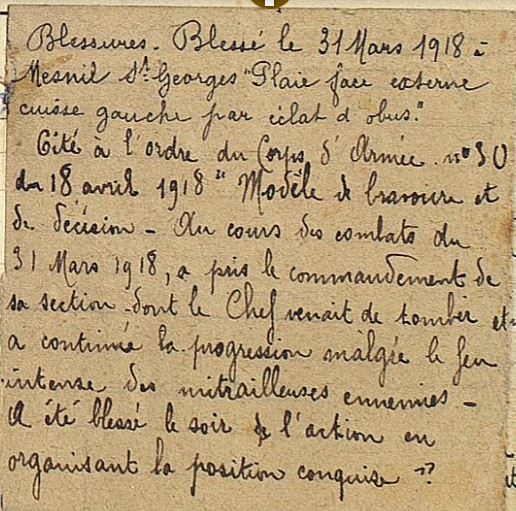 Blessures. Blessé le 31 Mars 1918 à
Mesnil St Georges "Plaie face externe
cuisse gauche par éclat d'obus."
Cité à l'ordre du Corps d'Armée. n° 30
du 18 avril 1918 " Modèle de bravoure et
de décision - Au cours des combats du
31 Mars 1918, a pris le commandement de
sa section dont le Chef venait de tomber et
a continué la progression malgré le feu
intense des mitrailleuses ennemies -
A été blessé le soir de l'action en
organisant la position conquise "